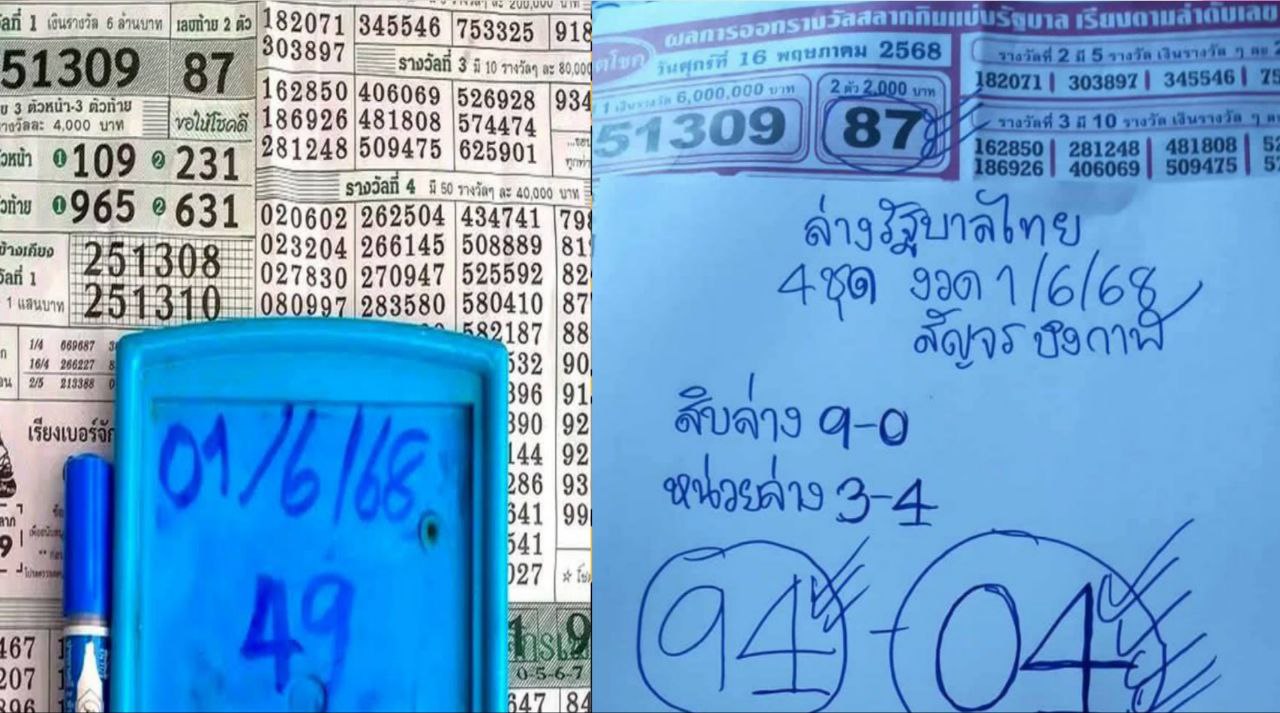 ที่ 1 เงินรางวัล 6 ล้านบาท เลขท้าย 2 ตัว
51309 87
3 ตัวหน้า-3 ตัวท้าย
รางวัลละ 4,000 บาท ขอให้โชคดี
❶109 ❷231
❶965 ❷631
ข้างเคียง 251308
251310
1 แสนบาท
1/4 669687
16/4 266227
2/5 213388
เรียงเบอร์จัก
182071 345546 753325 918
303897 รางวัลที่ 3 มี 10 รางวัลๆ ละ 80,000
162850 406069 526928 934
186926 481808 574474
281248 509475 625901
รางวัลที่ 4 มี 50 รางวัลๆ ละ 40,000 บาท
020602 262504 434741 798
023204 266145 508889 81
027830 270947 525592 82
080997 283580 580410 87
582187 88
532 90
396 91
390 92
144 92
286 93
541 99
541
027
0-5-6-7
467
207
896
647 84
01/6/68
49
ผลการออกรางวัลสลากกินแบ่งรัฐบาล เรียงตามลำดับเลข
วันศุกร์ที่ 16 พฤษภาคม 2568
1 เงินรางวัล 6,000,000 บาท 2 ตัว 2,000 บาท
51309 87
รางวัลที่ 2 มี 5 รางวัล เงินรางวัล ๆ ละ
182071 303897 345546 75
รางวัลที่ 3 มี 10 รางวัล เงินรางวัล ๆ ละ
162850 281248 481808 52
186926 406069 509475 57
ล่างรัฐบาลไทย
4ชุด งวด 1/6/68
สัญจร บึงกาฬ
สิบล่าง 9-0
หน่วยล่าง 3-4
94 - 04